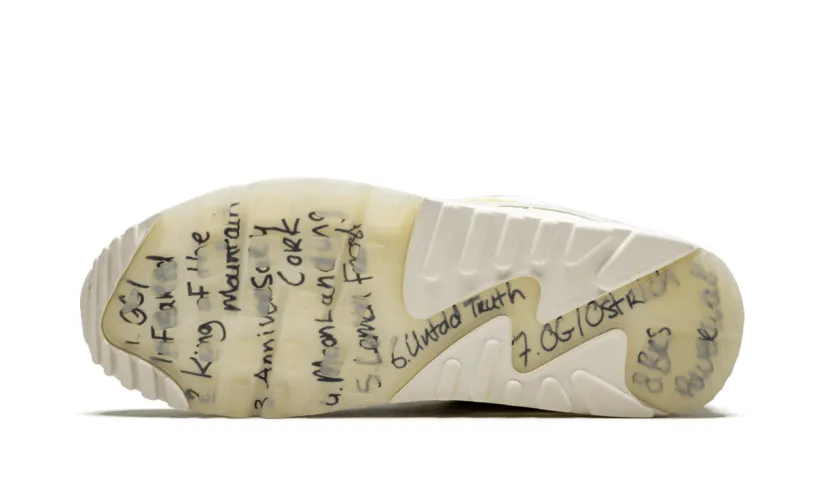 1. OG/
2 King of the
Mountain
3 Anniversary
Cork
4. Moon Landing
5. Lemon Frost
6. Untold Truth
7. OG/Ostrich
8 Bers